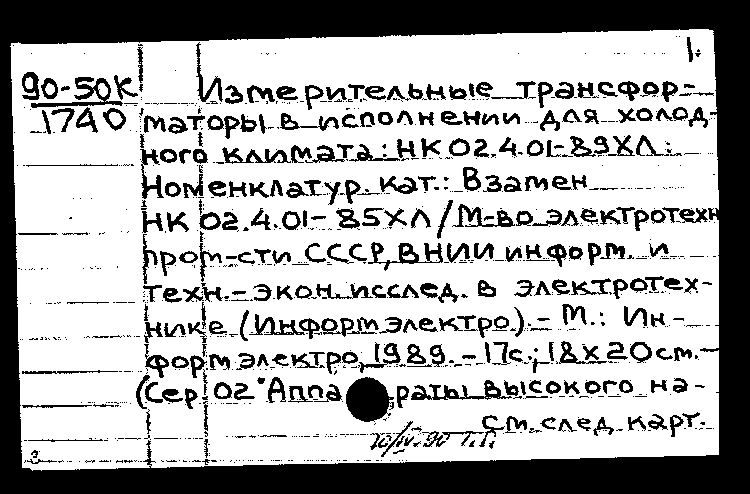 1.
90-50К Измерительные трансфор-
1740 маторы в исполнении для холод-
ного климата: НК 02.4.01-89ХЛ:
Номенклатур. кат.: Взамен
НК 02.4.01-85ХЛ/М-во электротехн
пром-сти СССР, ВНИИ информ. и
техн.-экон. исслед. в электротех-
нике (Информэлектро).- М.: Ин-
формэлектро, 1989.-17с.; 18х20см.-
(Сер. 02 "Аппараты высокого на-
см. след. карт.
10/IV-90